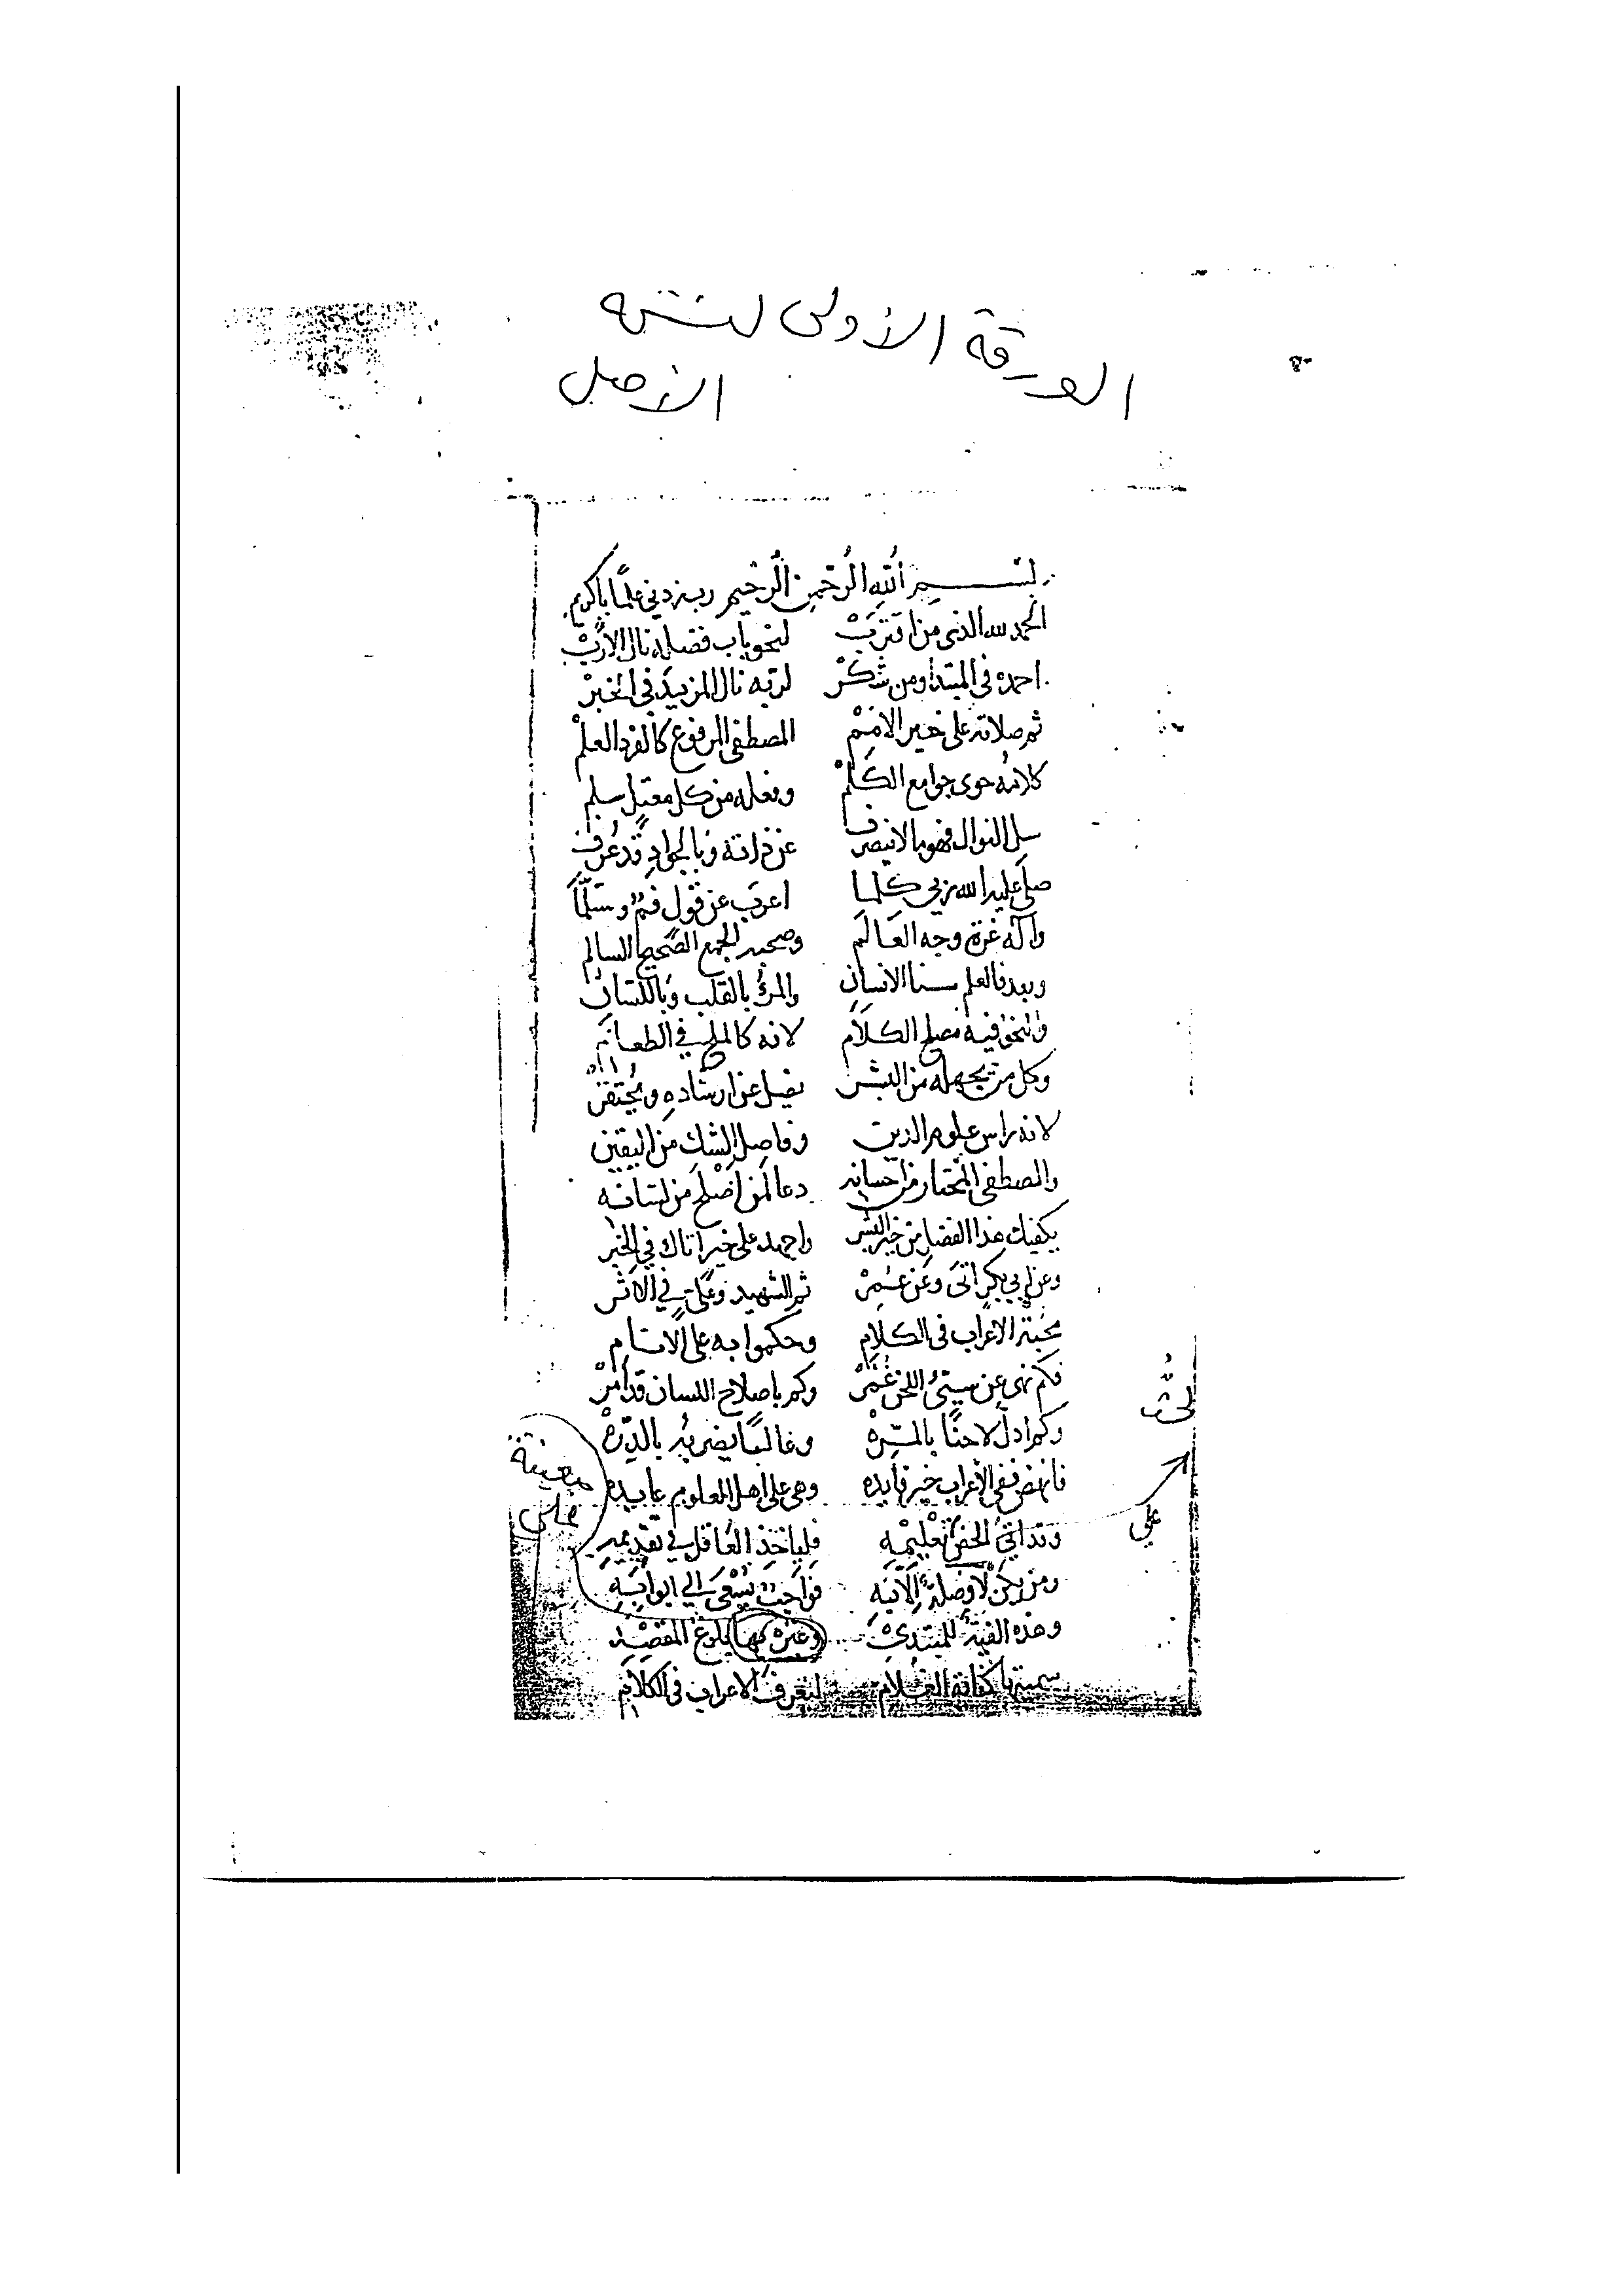 الورقة الأولى لنسخة
الأصل
بسم الله الرحمن الرحيم رب زدني علمًا يا كريم
الحمد لله الذي من اقترب لنحو باب فضله نال الأرب
احمده في المبتدا ومن شكر لربه نال المزيد في الخبر
ثم صلاته على خير الامم المصطفى المرفوع كالفرد العلم
كلامه حوى جوامع الكلم وفعله من كل معتل سلم
سل النوال فهو ما لا ينصرف عن ذاته وبالجواد قد عرف
صلى عليه الله ربي كلما اعرب عن قول فم وسلما
وآله غرة وجه العالم وصحبه الجمع الصحيح السالم
وبعد فالعلم سنا الانسان والمرء بالقلب وباللسان
والنحو فيه مصلح الكلام لانه كالملح في الطعام
وكل من يجهله من البشر يضل عن ارشاده ويحتقر
لانه راس علوم الدين وفاصل الشك من اليقين
والمصطفى المختار من احسانه دعا لمن اصلح من لسانه
يكفيك هذا الفضل من خير البشر واجهد على خير اتاك في الخبر
وعن ابي بكر اتى وعن عمر ثم الشهيد وعلي في الاثر
محبة الاعراب في الكلام وحكموا به على الانام
فكم نهى عن سيئ اللحن عمر وكم باصلاح اللسان قد امر
وكم ادل لاحنًا بالمسره وغالبًا يضربه بالدره
فانهض ففي الاعراب خير فايده وهي على اهل العلوم عايده
وقد اتى الحض تعليمه فلياخذ العاقل في تقديمه
ومن يكن لا وصلة الا به فواجب يسعى الى ابوابه
وهذه الفية للمبتدي وغيره بها بلوغ المقصد
سميتها كفاية الغلام ليعرف الاعراب في الكلام
على